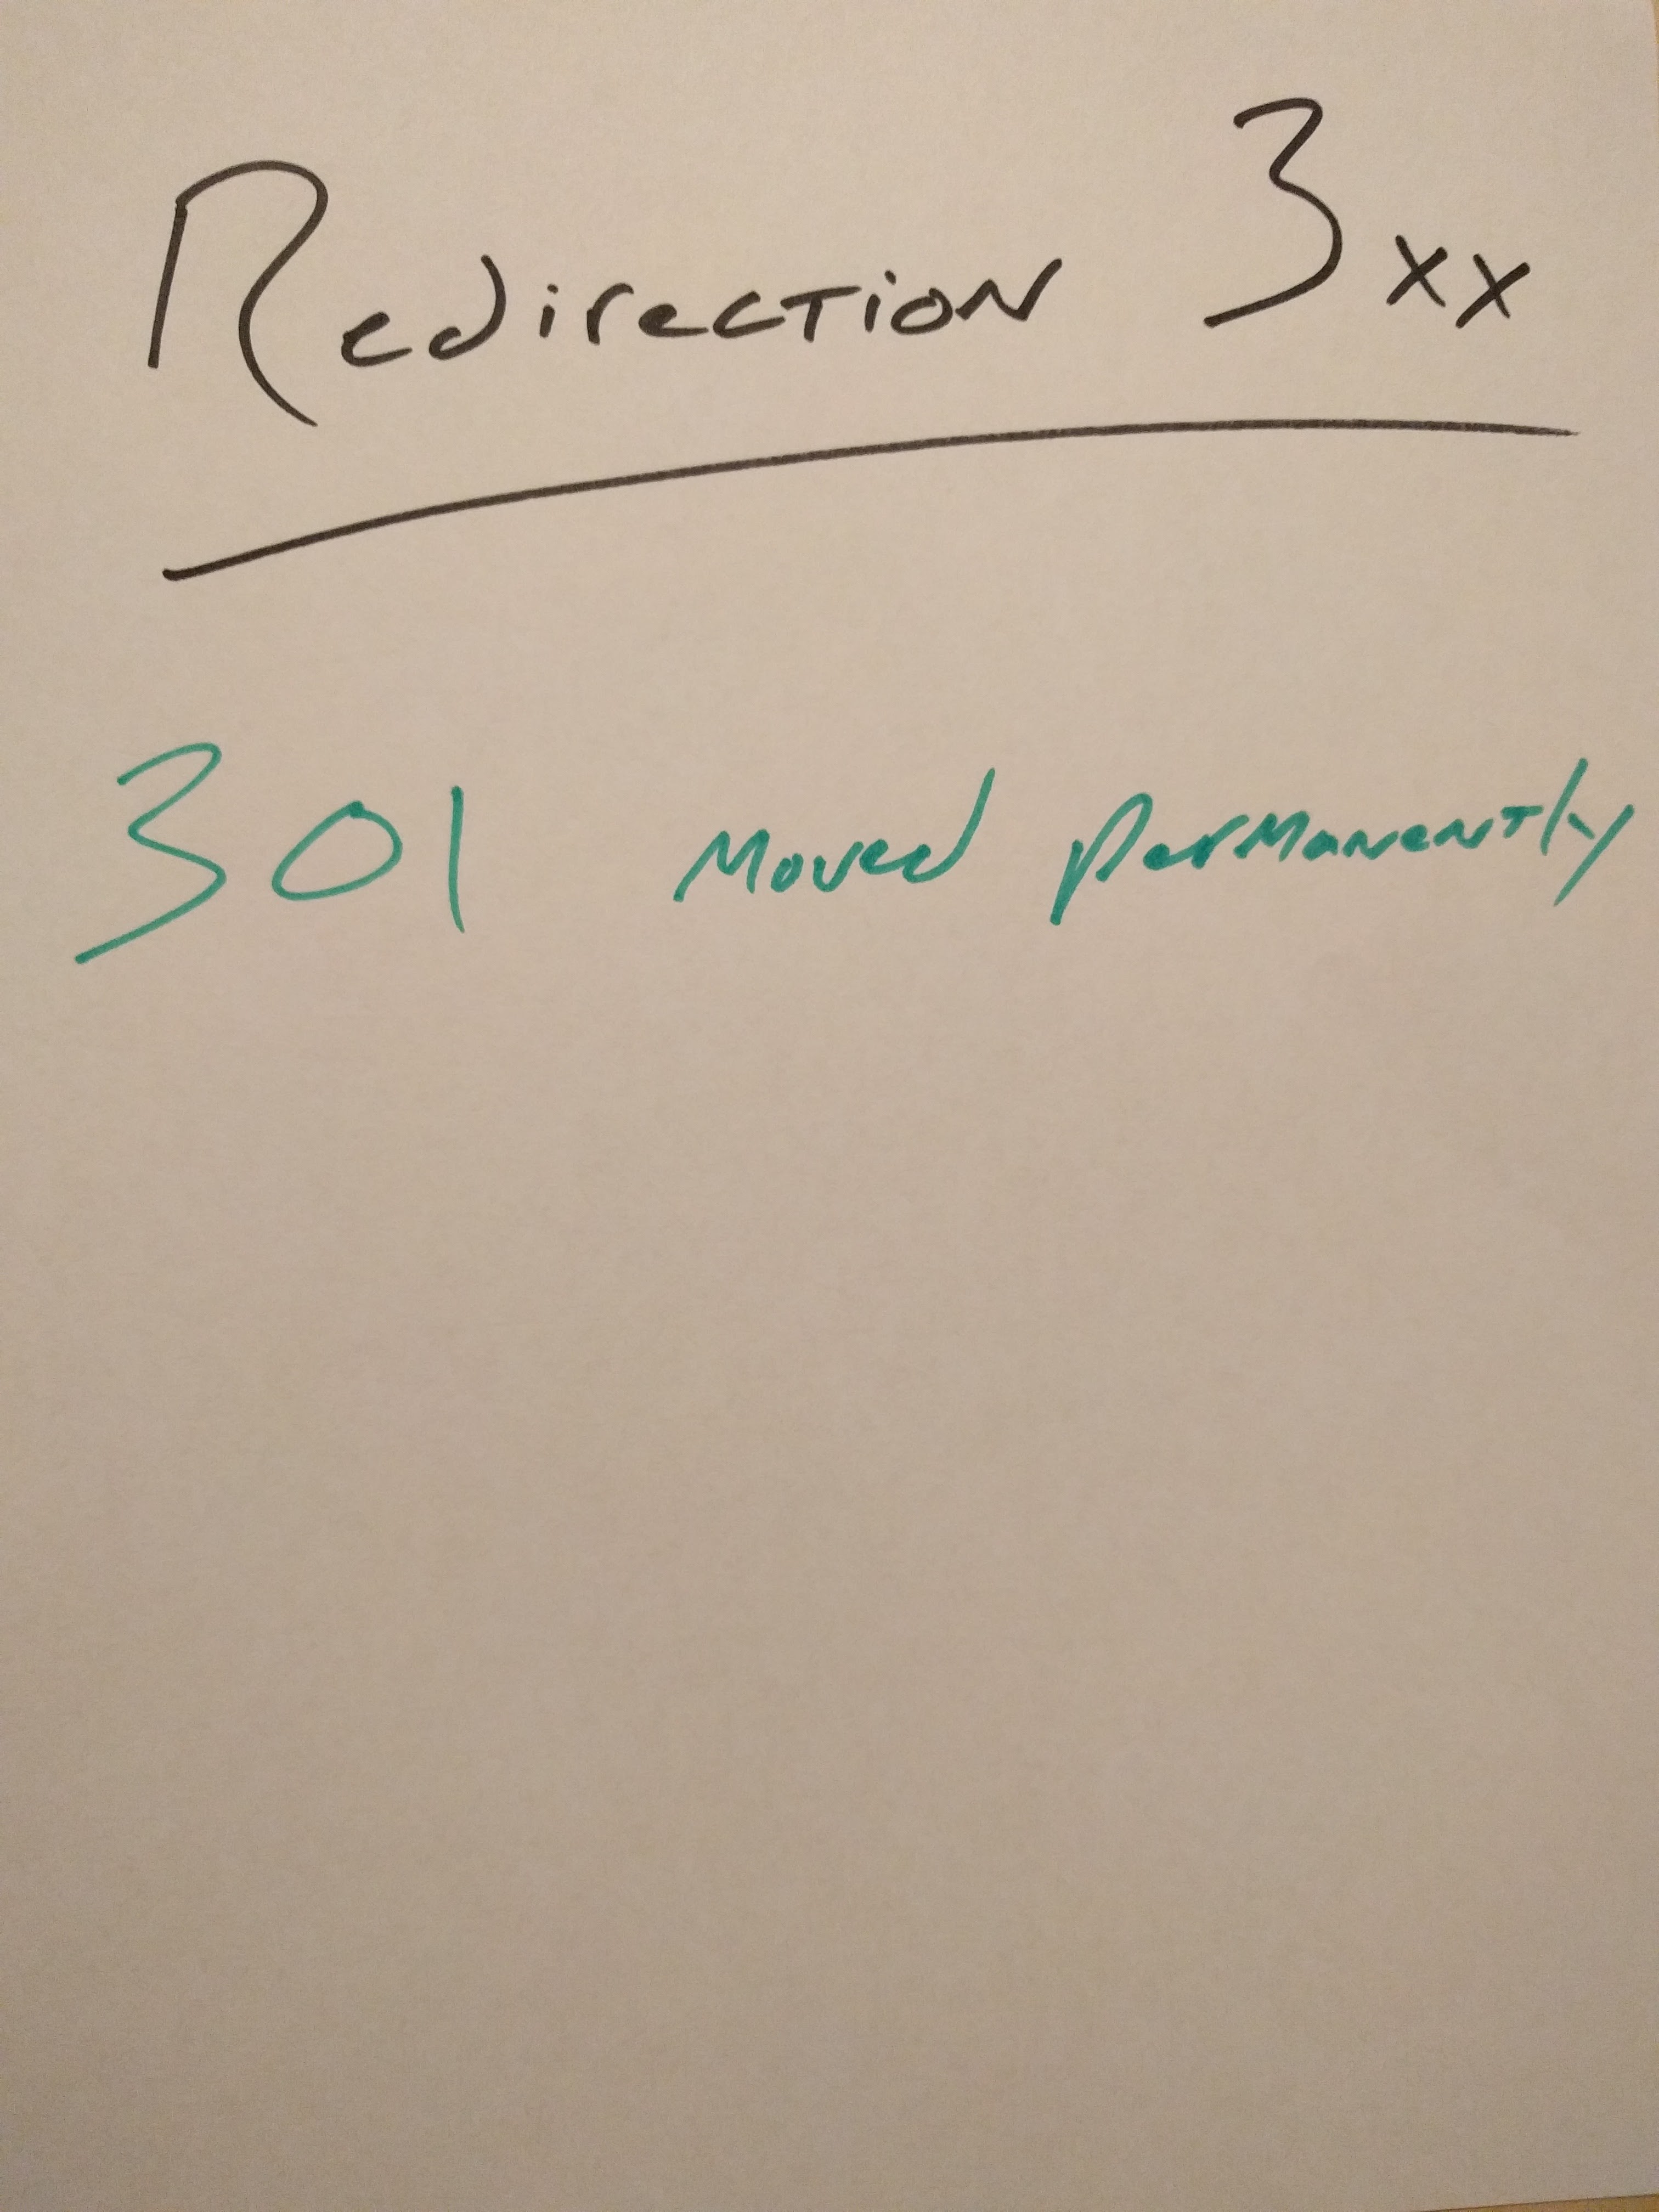 Redirection 3xx
301 Moved permanently